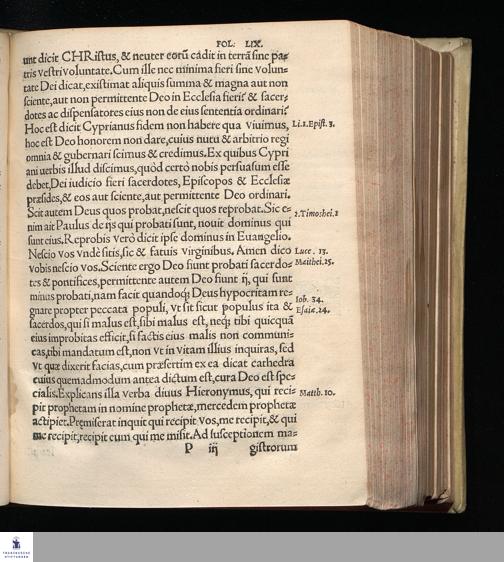 FOL. LIX.
unt dicit CHRistus, & neuter eorũ cadit in terrã sine pa-
tris vestri voluntate. Cum ille nec minima fieri sine volun-
tate Dei dicat, existimat aliquis summa & magna aut non
sciente, aut non permittente Deo in Ecclesia fieri? & sacer-
dotes ac dispensatores eius non de eius sententia ordinari?
Hoc est dicit Cyprianus fidem non habere qua viuimus, Li.1.Epist. 3.
hoc est Deo honorem non dare, cuius nutu & arbitrio regi
omnia & gubernari scimus & credimus. Ex quibus Cypri
ani uerbis illud discimus, quòd certò nobis persuasum esse
debet, Dei iudicio fieri sacerdotes, Episcopos & Ecclesiæ
præsides, & eos aut sciente, aut permittente Deo ordinari.
Scit autem Deus quos probat, nescit quos reprobat. Sic e- 2.Timothei.2
nim ait Paulus de ijs qui probati sunt, nouit dominus qui
sunt eius. Reprobis verò dicit ipse dominus in Euangelio.
Nescio vos vndè sitis, sic & fatuis virginibus. Amen dico Luce . 13.
vobis nescio vos. Sciente ergo Deo fiunt probati sacerdo- Matthei.25.
tes & pontifices, permittente autem Deo fiunt ij, qui sunt
minus probati, nam facit quandoq; Deus hypocritam re- Iob. 34.
gnare propter peccata populi, vt sit sicut populus ita & Esaiæ.24.
sacerdos, qui si malus est, sibi malus est, neq; tibi quicquã
eius improbitas efficit, si factis eius malis non communi-
cas, tibi mandatum est, non vt in vitam illius inquiras, sed
vt quæ dixerit facias, cum præsertim ex ea dicat cathedra
cuius quemadmodum antea dictum est, cura Deo est spe-
cialis. Explicans illa verba diuus Hieronymus, qui reci- Matth. 10.
pit prophetam in nomine prophetæ, mercedem prophetæ
actipiet. Præmiserat inquit qui recipit vos, me recipit, & qui
me recipit, recipit eum qui me misit. Ad susceptionem ma-
P iij gistrorum